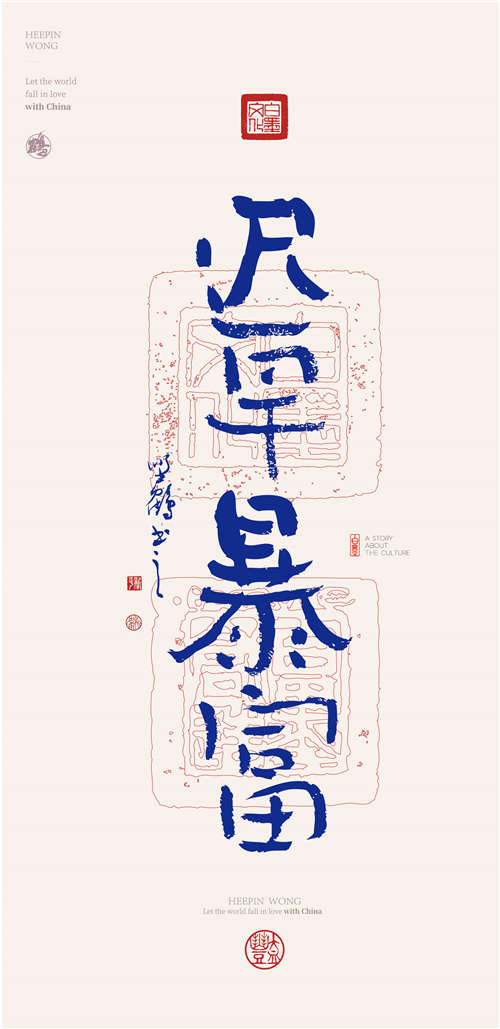 HEEPIN
WONG
Let the world
fall in love
with China
白墨
文化
迟
早
暴
富
白墨
A STORY
ABOUT
THE CULTURE
HEEPIN WONG
Let the world fall in love with China